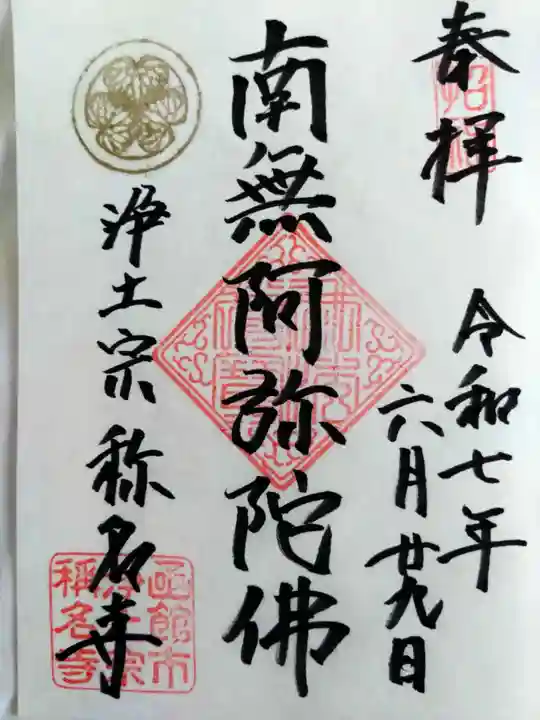 奉拝
令和七年
六月廿九日
南無阿弥陀佛
浄土宗 称名寺
函館市
浄土宗
稱名寺